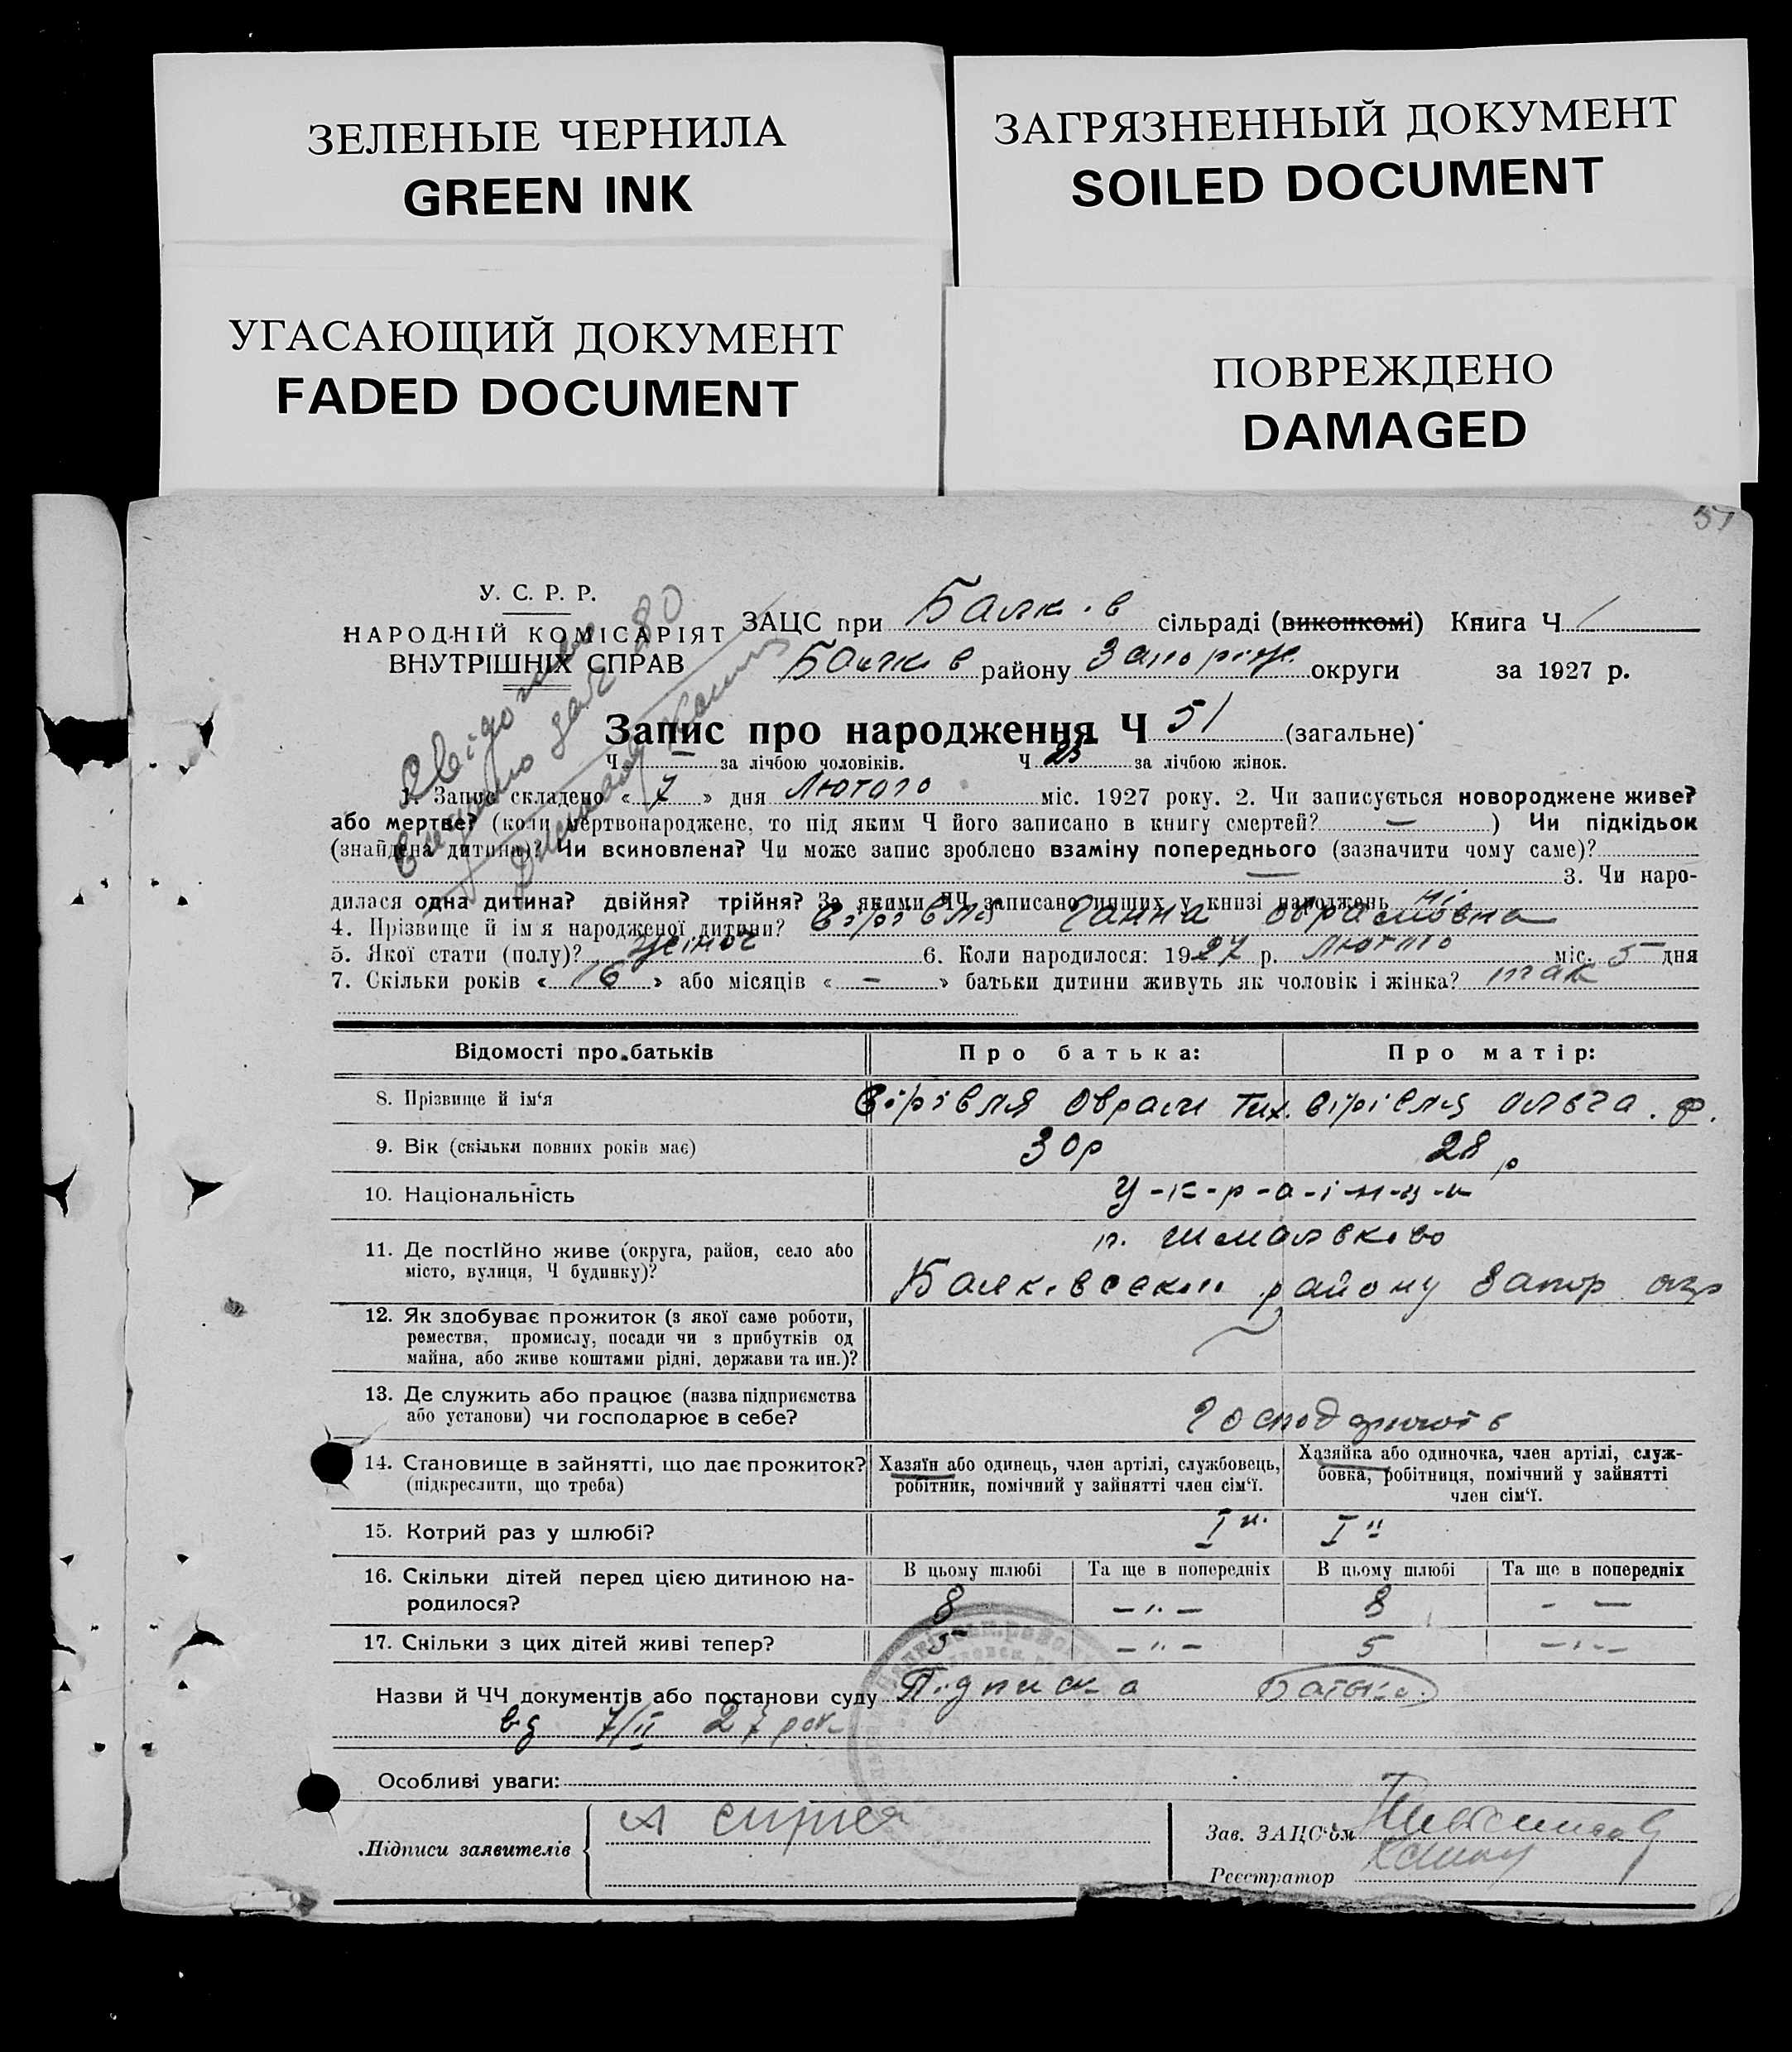 ЗЕЛЕНЫЕ ЧЕРНИЛА
GREEN INK
ЗАГРЯЗНЕННЫЙ ДОКУМЕНТ
SOILED DOCUMENT
УГАСАЮЩИЙ ДОКУМЕНТ
FADED DOCUMENT
ПОВРЕЖДЕНО
DAMAGED
51
У. С. Р. Р.
НАРОДНІЙ КОМІСАРІЯТ
ВНУТРІШНІХ СПРАВ
ЗАЦС при Балк.в сільраді (виконкомі) Книга Ч 1
Балк в району Запоріж. округи за 1927 р.
Запис про народження Ч 51 (загальне)
Ч — за лічбою чоловіків. Ч 25 за лічбою жінок.
1. Запис складено « 7 » дня Лютого міс. 1927 року. 2. Чи записується новороджене живе?
або мертве? (коли мертвонароджене, то під яким Ч його записано в книгу смертей? — ) Чи підкідьок
(знайдена дитина)? Чи всиновлена? Чи може запис зроблено взаміну попереднього (зазначити чому саме)?
— 3. Чи наро-
дилася одна дитина? двійня? трійня? За якими ЧЧ записано инших у книзі народжень ні
4. Прізвище й ім'я народженої дитини? Вірівля Ганна Оврамовна
5. Якої стати (полу)? жіноч 6. Коли народилося: 1927 р. Лютого міс. 5 дня
7. Скільки років « 16 » або місяців « — » батьки дитини живуть як чоловік і жінка? так
Відомості про батьків Про батька: Про матір:
8. Прізвище й ім'я Вірівля Оврам Тих. Вірівля Ольга. Ф.
9. Вік (скільки повних років має) 30р 28 р
10. Національність У-к-р-а-ї-н-ц-и
11. Де постійно живе (округа, район, село або
місто, вулиця, Ч будинку)?
Балк.вского району Запор окр
12. Як здобуває прожиток (з якої саме роботи,
ремества, промислу, посади чи з прибутків од
майна, або живе коштами рідні, держави та ин.)?
13. Де служить або працює (назва підприємства
або установи) чи господарює в себе?
14. Становище в зайнятті, що дає прожиток?
(підкреслити, що треба)
Хазяїн або одинець, член артілі, службовець,
робітник, помічний у зайнятті член сім'ї.
Хазяйка або одиночка, член артілі, служ-
бовка, робітниця, помічний у зайнятті
член сім'ї.
15. Котрий раз у шлюбі? I й. I й
16. Скільки дітей перед цією дитиною на-
родилося?
В цьому шлюбі Та ще в попередніх В цьому шлюбі Та ще в попередніх
8 -"- 8 - —
17. Скільки з цих дітей живі тепер? 5 -"- 5 -"-
Назви й ЧЧ документів або постанови суду Підписка батька
від 7/II 27 рок
Особливі уваги:
Підписи заявителів
Зав. ЗАЦС'ом
Реєстратор